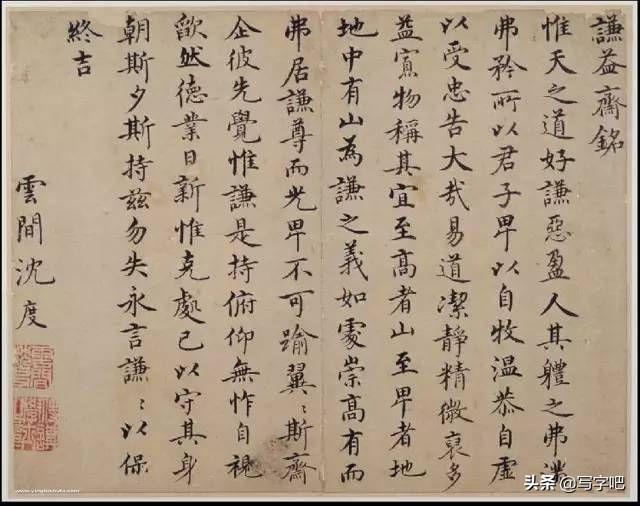 謙益齋銘
惟天之道好謙惡盈人其體之弗溢
弗矜所以君子卑以自牧温恭自虛
以受忠告大哉易道潔靜精微裒多
益寡物稱其宜至高者山至卑者地
地中有山為謙之義如處崇高有而
弗居謙尊而光卑不可踰翼〻斯齋
企彼先覺惟謙是持俯仰無怍自視
然德業日新惟克處己以守其身
朝斯夕斯持兹勿失永言謙〻以保
終吉
雲間沈度
头条 @写字吧